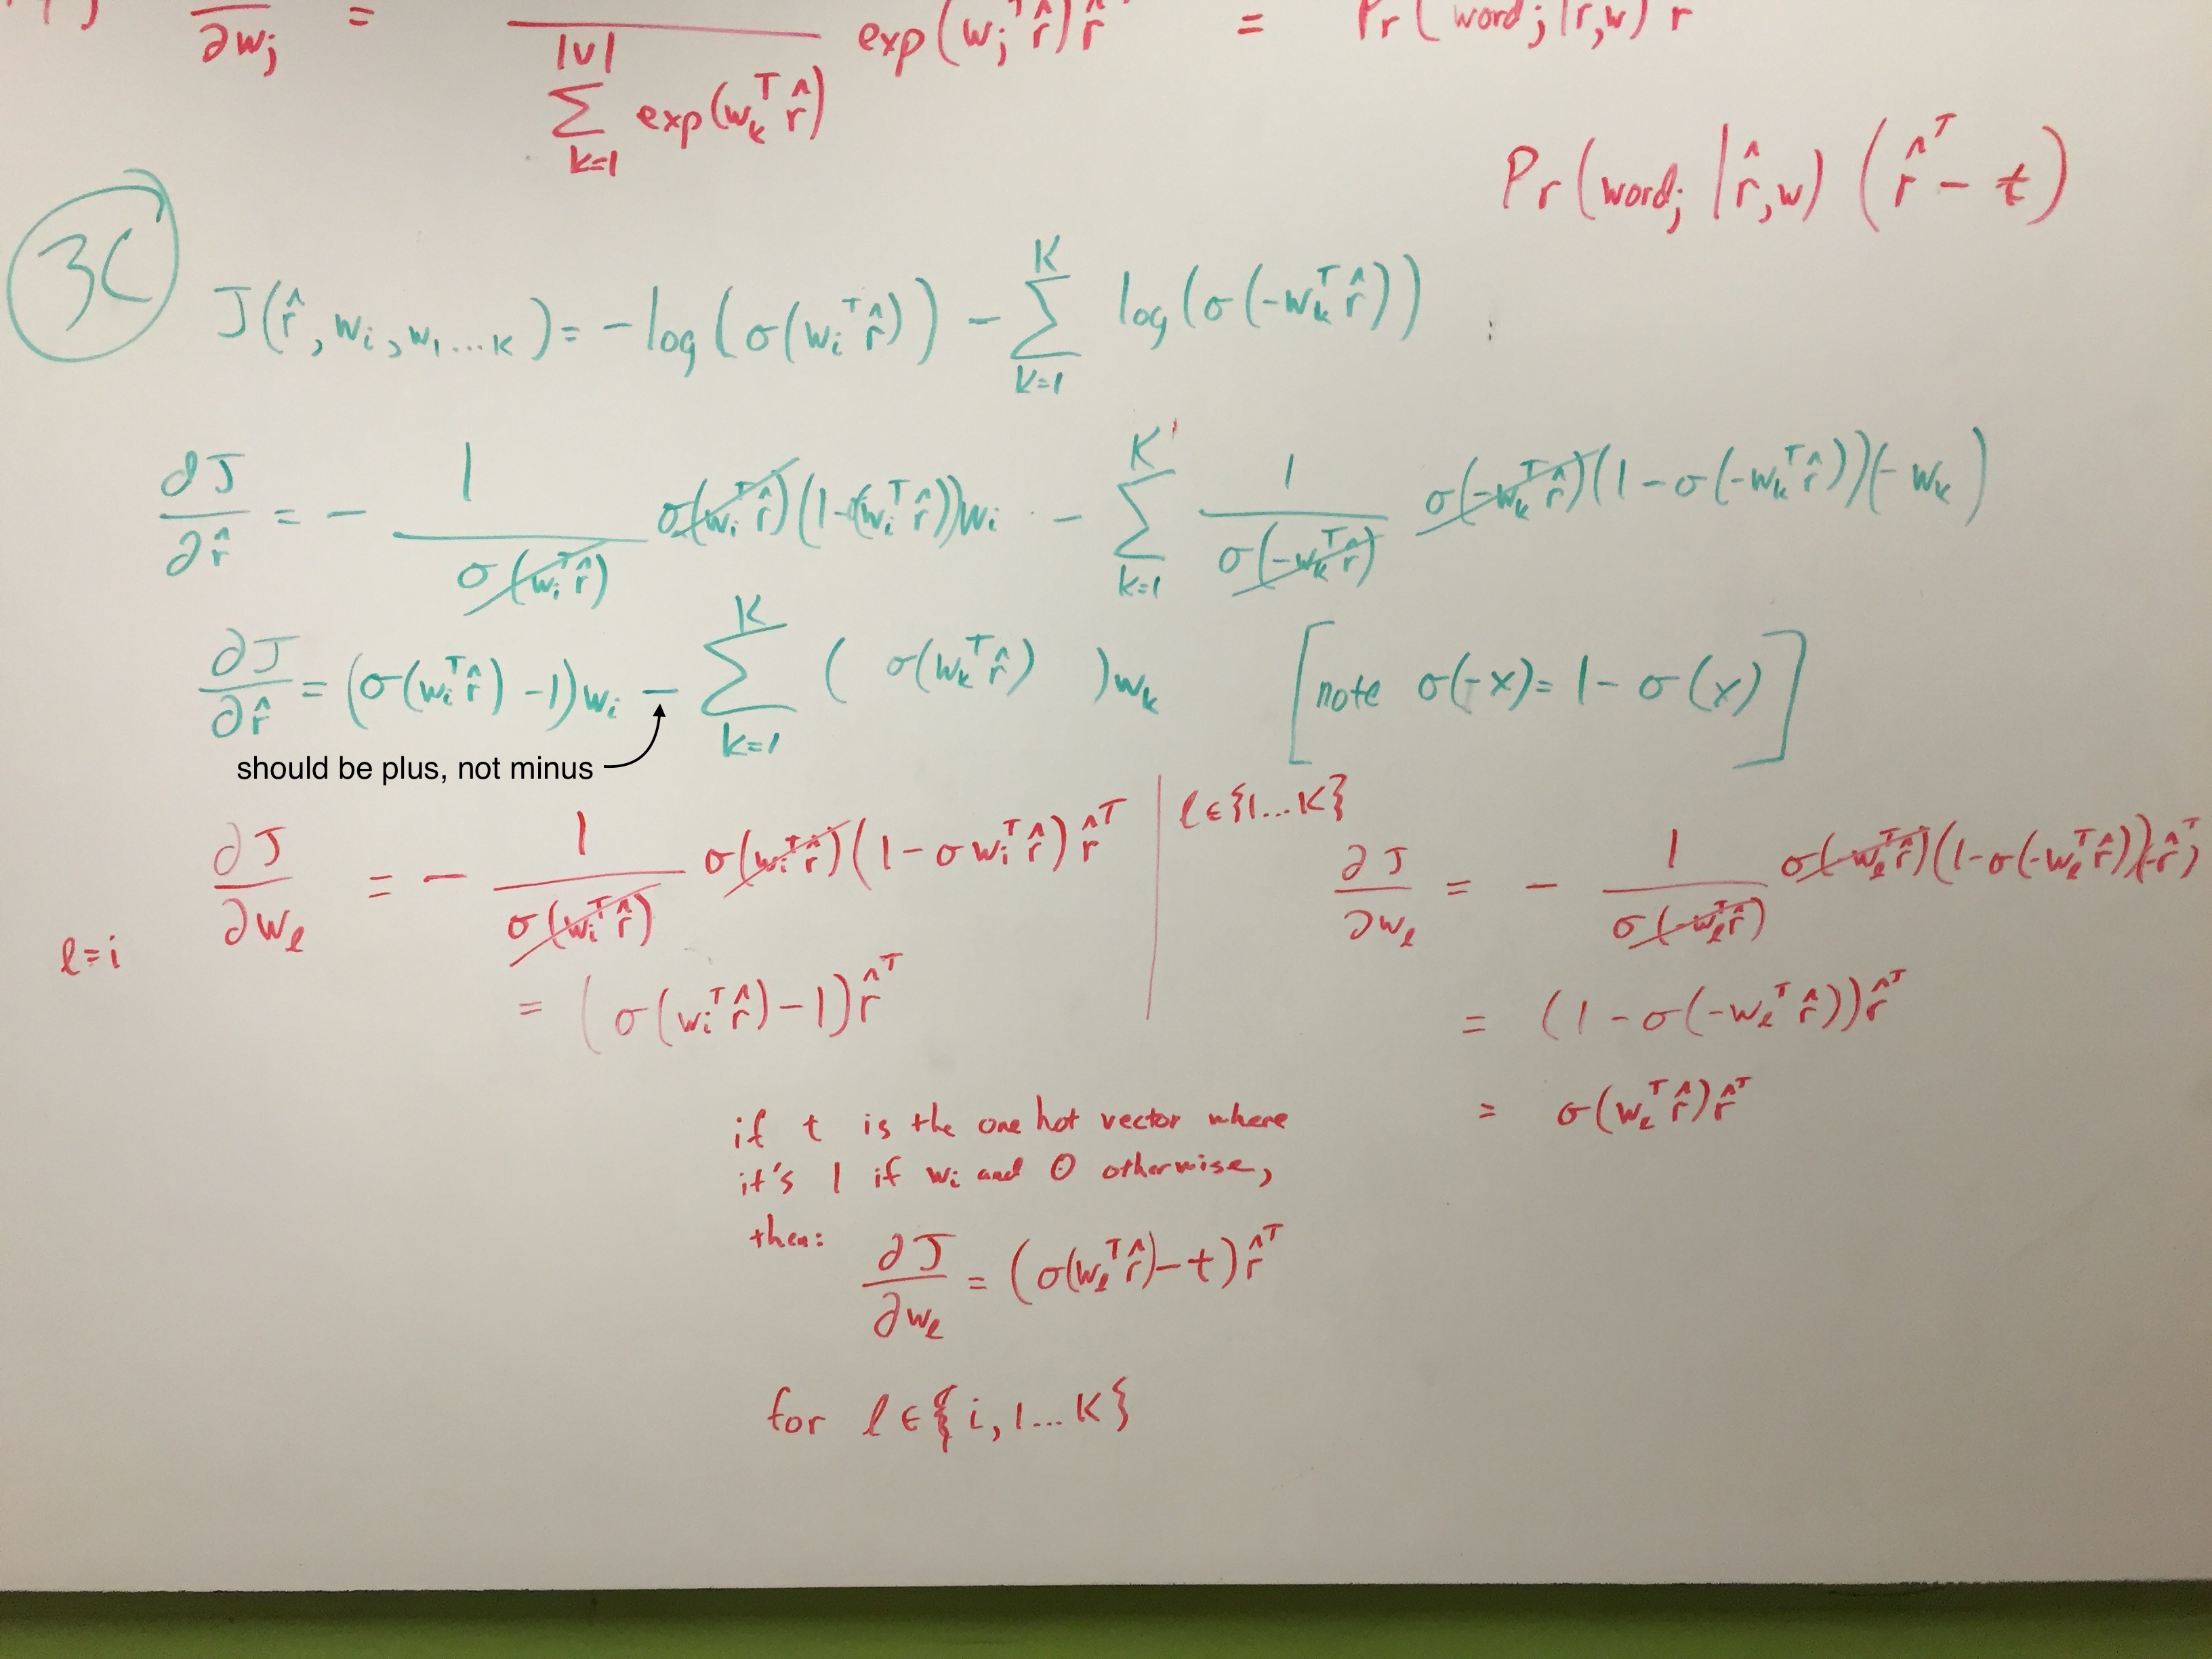 ∂w_j = |v| Σ k=1 exp(w_k^T r̂) exp(w_j^T r̂) r̂ = Pr(word_j | r̂, w) r
Pr(word_j | r̂, w) (r̂^T - t)
3C
J(r̂, w_i, w_1...K) = -log(σ(w_i^T r̂)) - Σ_{k=1}^{K} log(σ(-w_k^T r̂))
∂J/∂r̂ = - 1/σ(w_i^T r̂) σ(w_i^T r̂)(1-(w_i^T r̂))w_i - Σ_{k=1}^{K} 1/σ(-w_k^T r̂) σ(-w_k^T r̂)(1-σ(-w_k^T r̂))(-w_k)
∂J/∂r̂ = (σ(w_i^T r̂) -1)w_i - Σ_{k=1}^{K} ( σ(w_k^T r̂) )w_k [note σ(-x)= 1-σ(x)]
should be plus, not minus
l=i ∂J/∂w_l = - 1/σ(w_i^T r̂) σ(w_i^T r̂)(1-σ w_i^T r̂) r̂^T
= (σ(w_i^T r̂)-1) r̂^T
l∈{1...K}
∂J/∂w_l = - 1/σ(-w_l^T r̂) σ(-w_l^T r̂)(1-σ(-w_l^T r̂))(-r̂^T)
= (1-σ(-w_l^T r̂)) r̂^T
= σ(w_l^T r̂) r̂^T
if t is the one hot vector where
it's 1 if w_i and 0 otherwise,
then: ∂J/∂w_l = (σ(w_l^T r̂)-t) r̂^T
for l∈{i, 1...K}